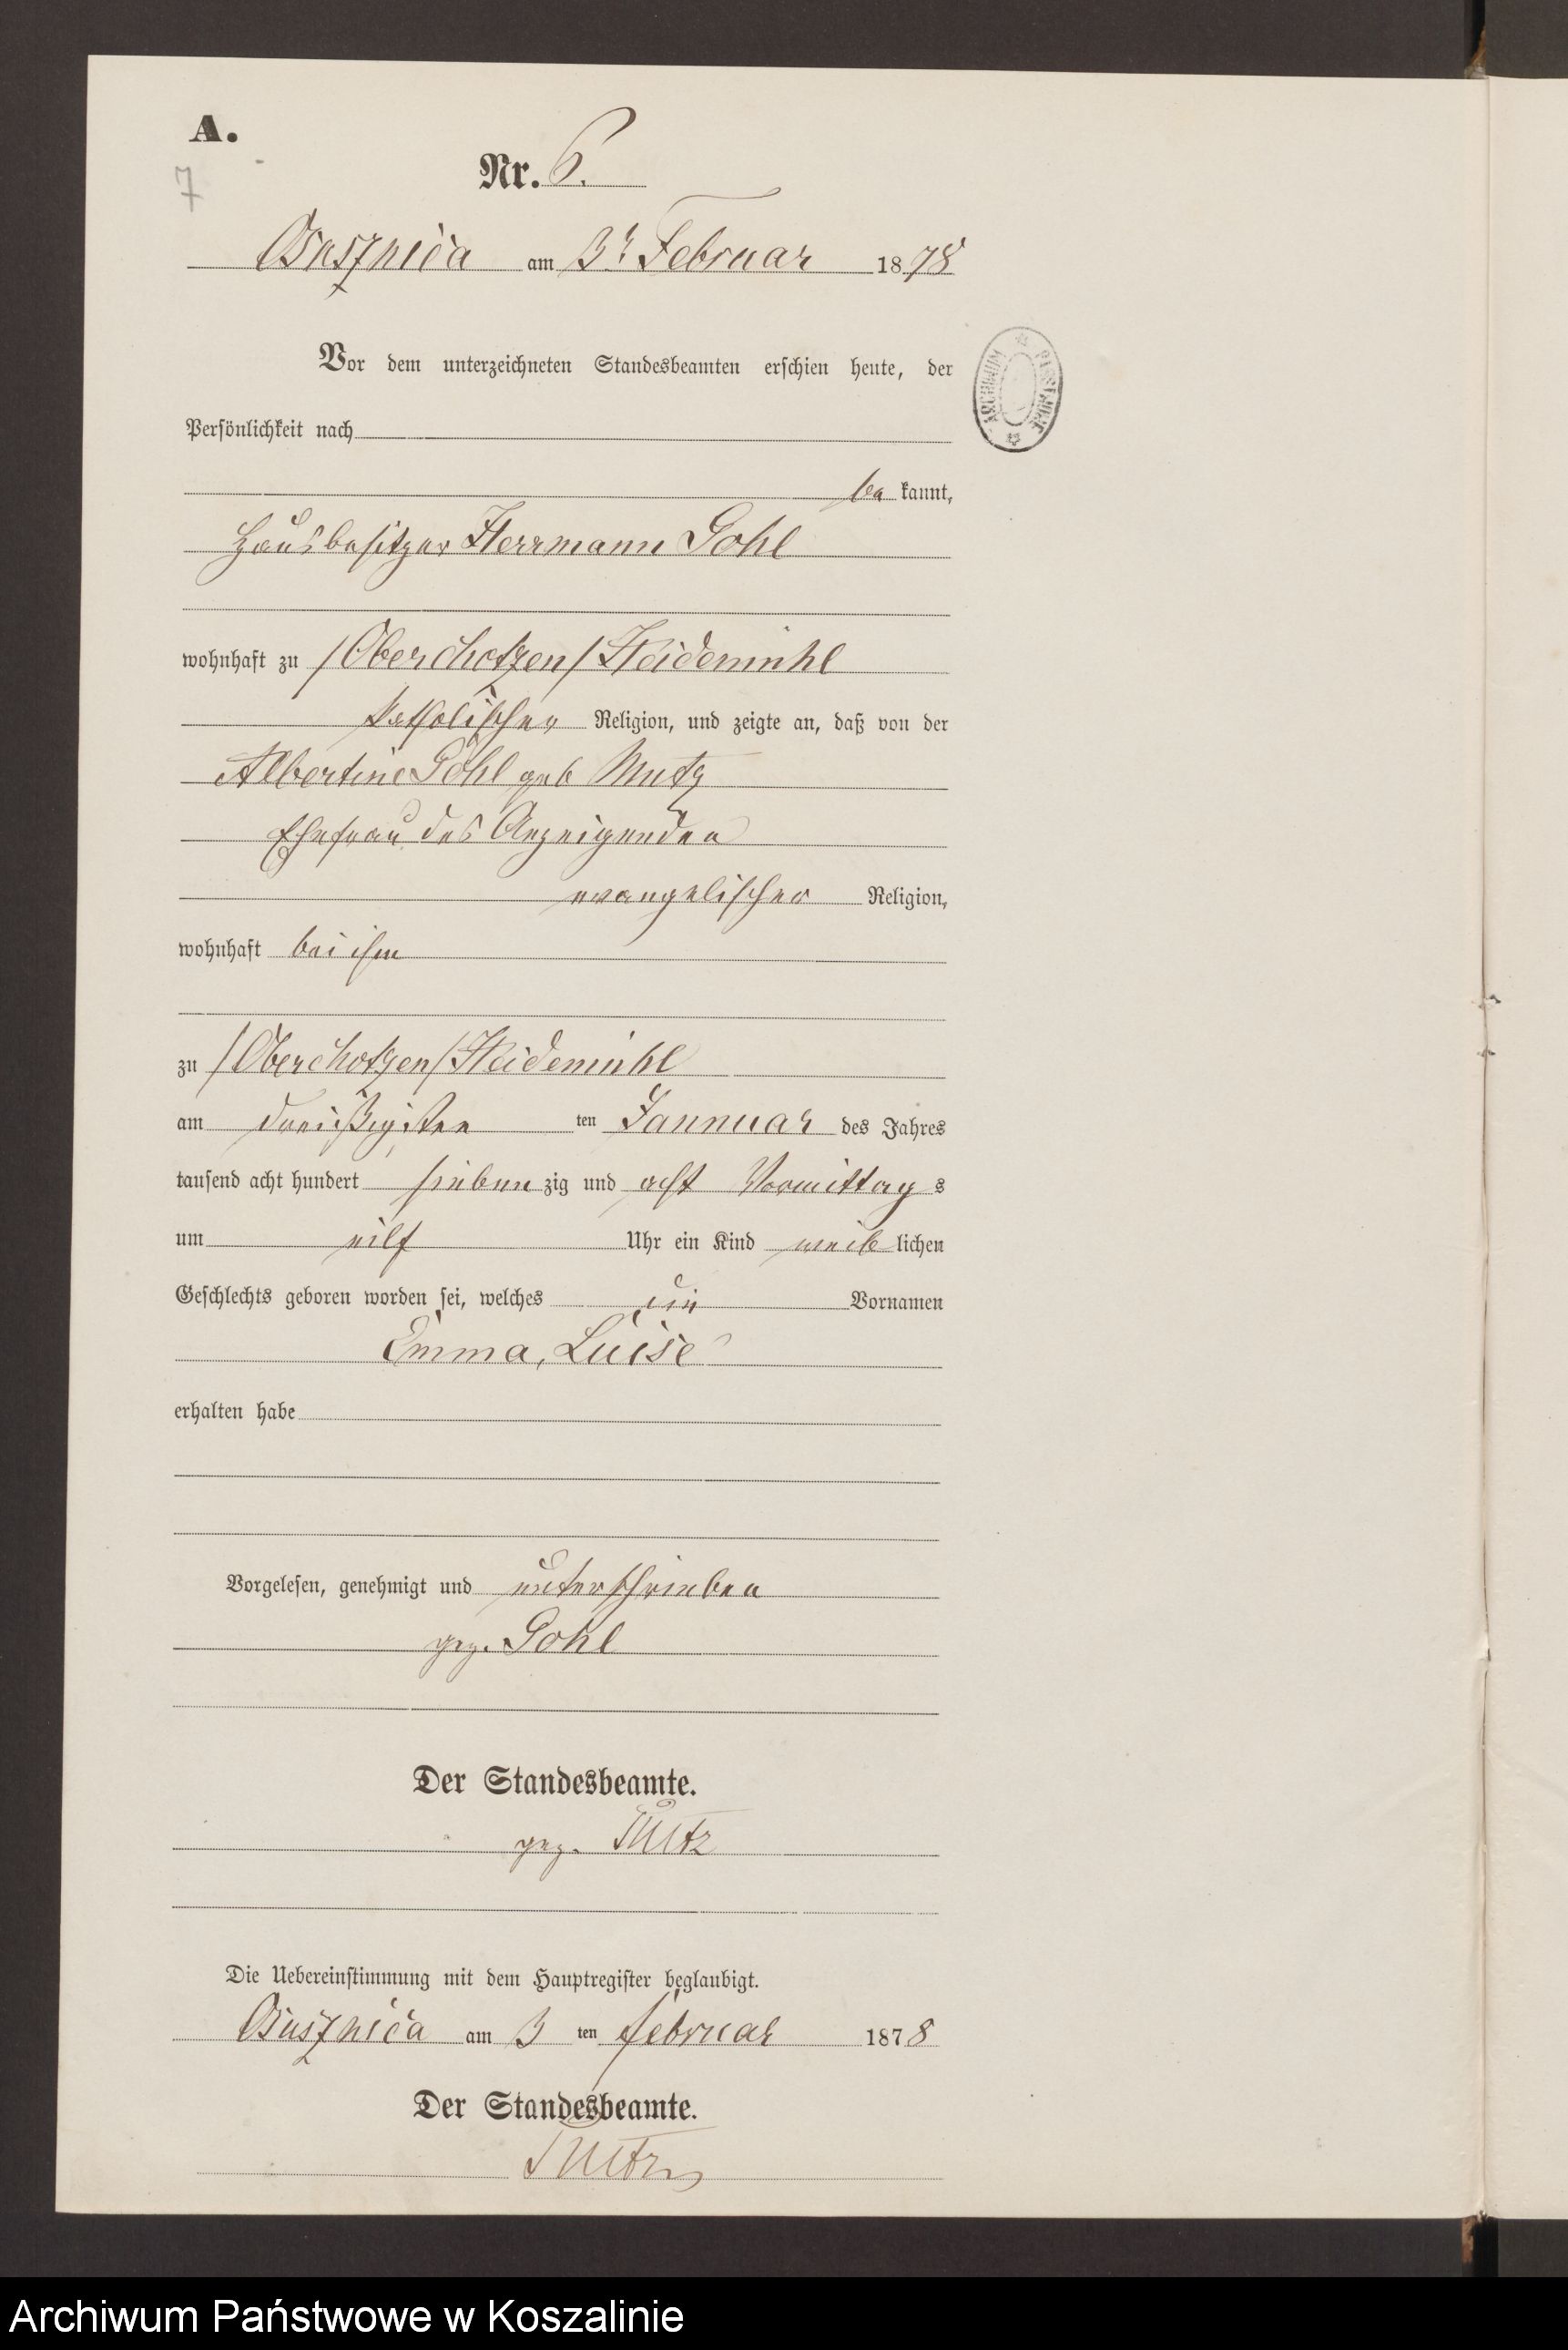 A.
7
Nr. 6.
Ośusznica am 3t Februar 1878
ARCHIWUM PAŃSTWOWE
Vor dem unterzeichneten Standesbeamten erschien heute, der
Persönlichkeit nach
be kannt,
Hausbesitzer Herrmann Gohl
wohnhaft zu /Oberchotzen/ Heidemühl
katholischer Religion, und zeigte an, daß von der
Albertine Gohl geb Mutz
Ehefrau des Anzeigenden
evangelischer Religion,
wohnhaft bei ihm
zu /Oberchotzen/ Heidemühl
am dreißigsten ten Jannuar des Jahres
tausend acht hundert sieben zig und acht Vormittag s
um eilf Uhr ein Kind weib lichen
Geschlechts geboren worden sei, welches die Vornamen
Emma, Luise
erhalten habe
Vorgelesen, genehmigt und unterschrieben
gez. Gohl
Der Standesbeamte.
gez.
Die Uebereinstimmung mit dem Hauptregister beglaubigt.
am 3 ten Februar 1878
Der Standesbeamte.
Archiwum Państwowe w Koszalinie